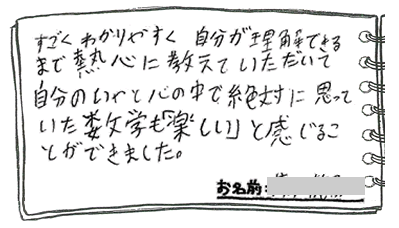 すごくわかりやすく 自分が理解できる
まで熱心に教えていただいて
自分のいやと心の中で絶対に思って
いた数学も「楽しい」と感じるこ
とができました。
お名前: